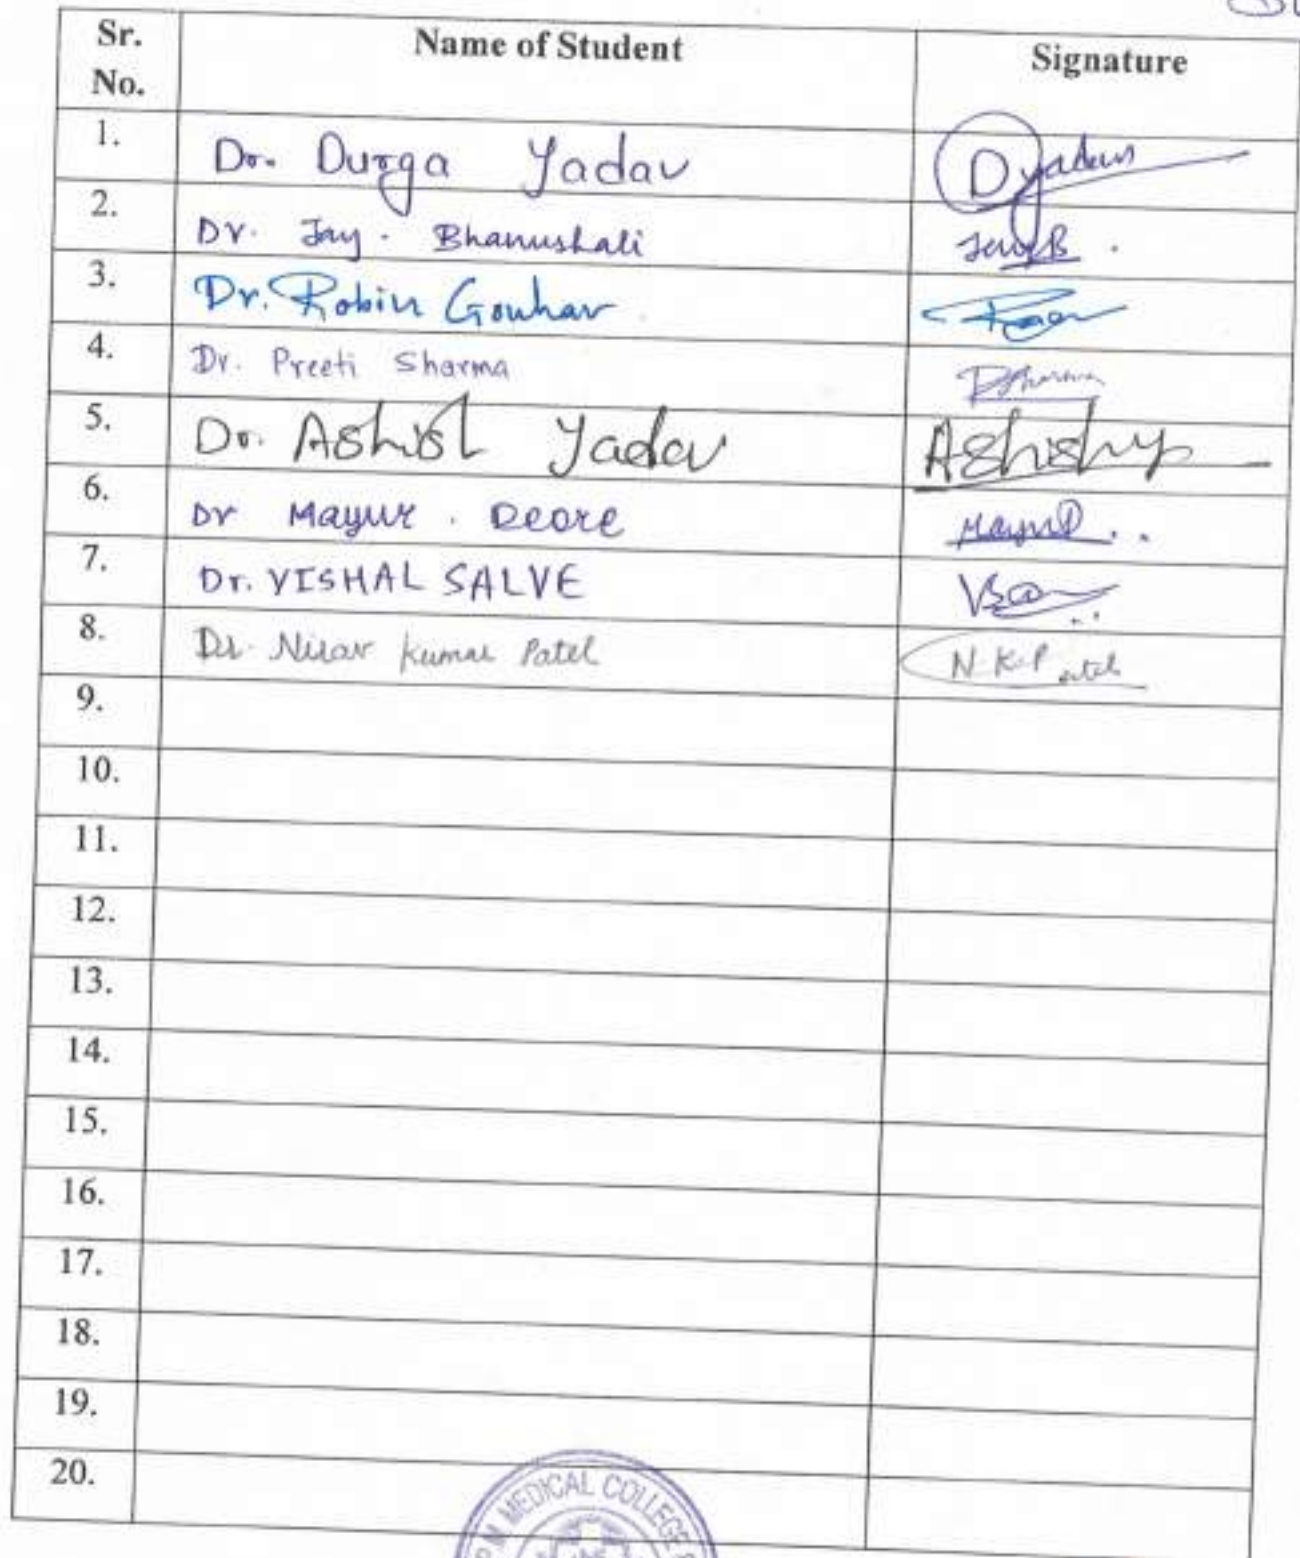 Sr. No. Name of Student Signature
1. Dr. Durga Yadav Dyadav
2. Dr. Jay. Bhanushali JayB.
3. Dr. Robin Gouhar
4. Dr. Preeti Sharma PSharma
5. Dr. Ashish Yadav Ashishy
6. Dr Mayur. Deore MayurD..
7. Dr. VISHAL SALVE
8. Dr. Nirav Kumar Patel N.K.Patel
9.
10.
11.
12.
13.
14.
15.
16.
17.
18.
19.
20.
MEDICAL COLLEGE